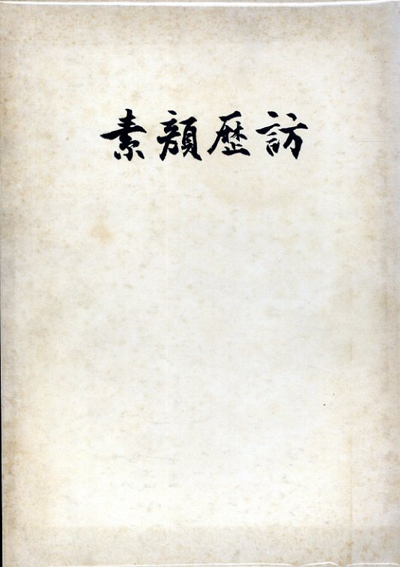 素顔歴訪